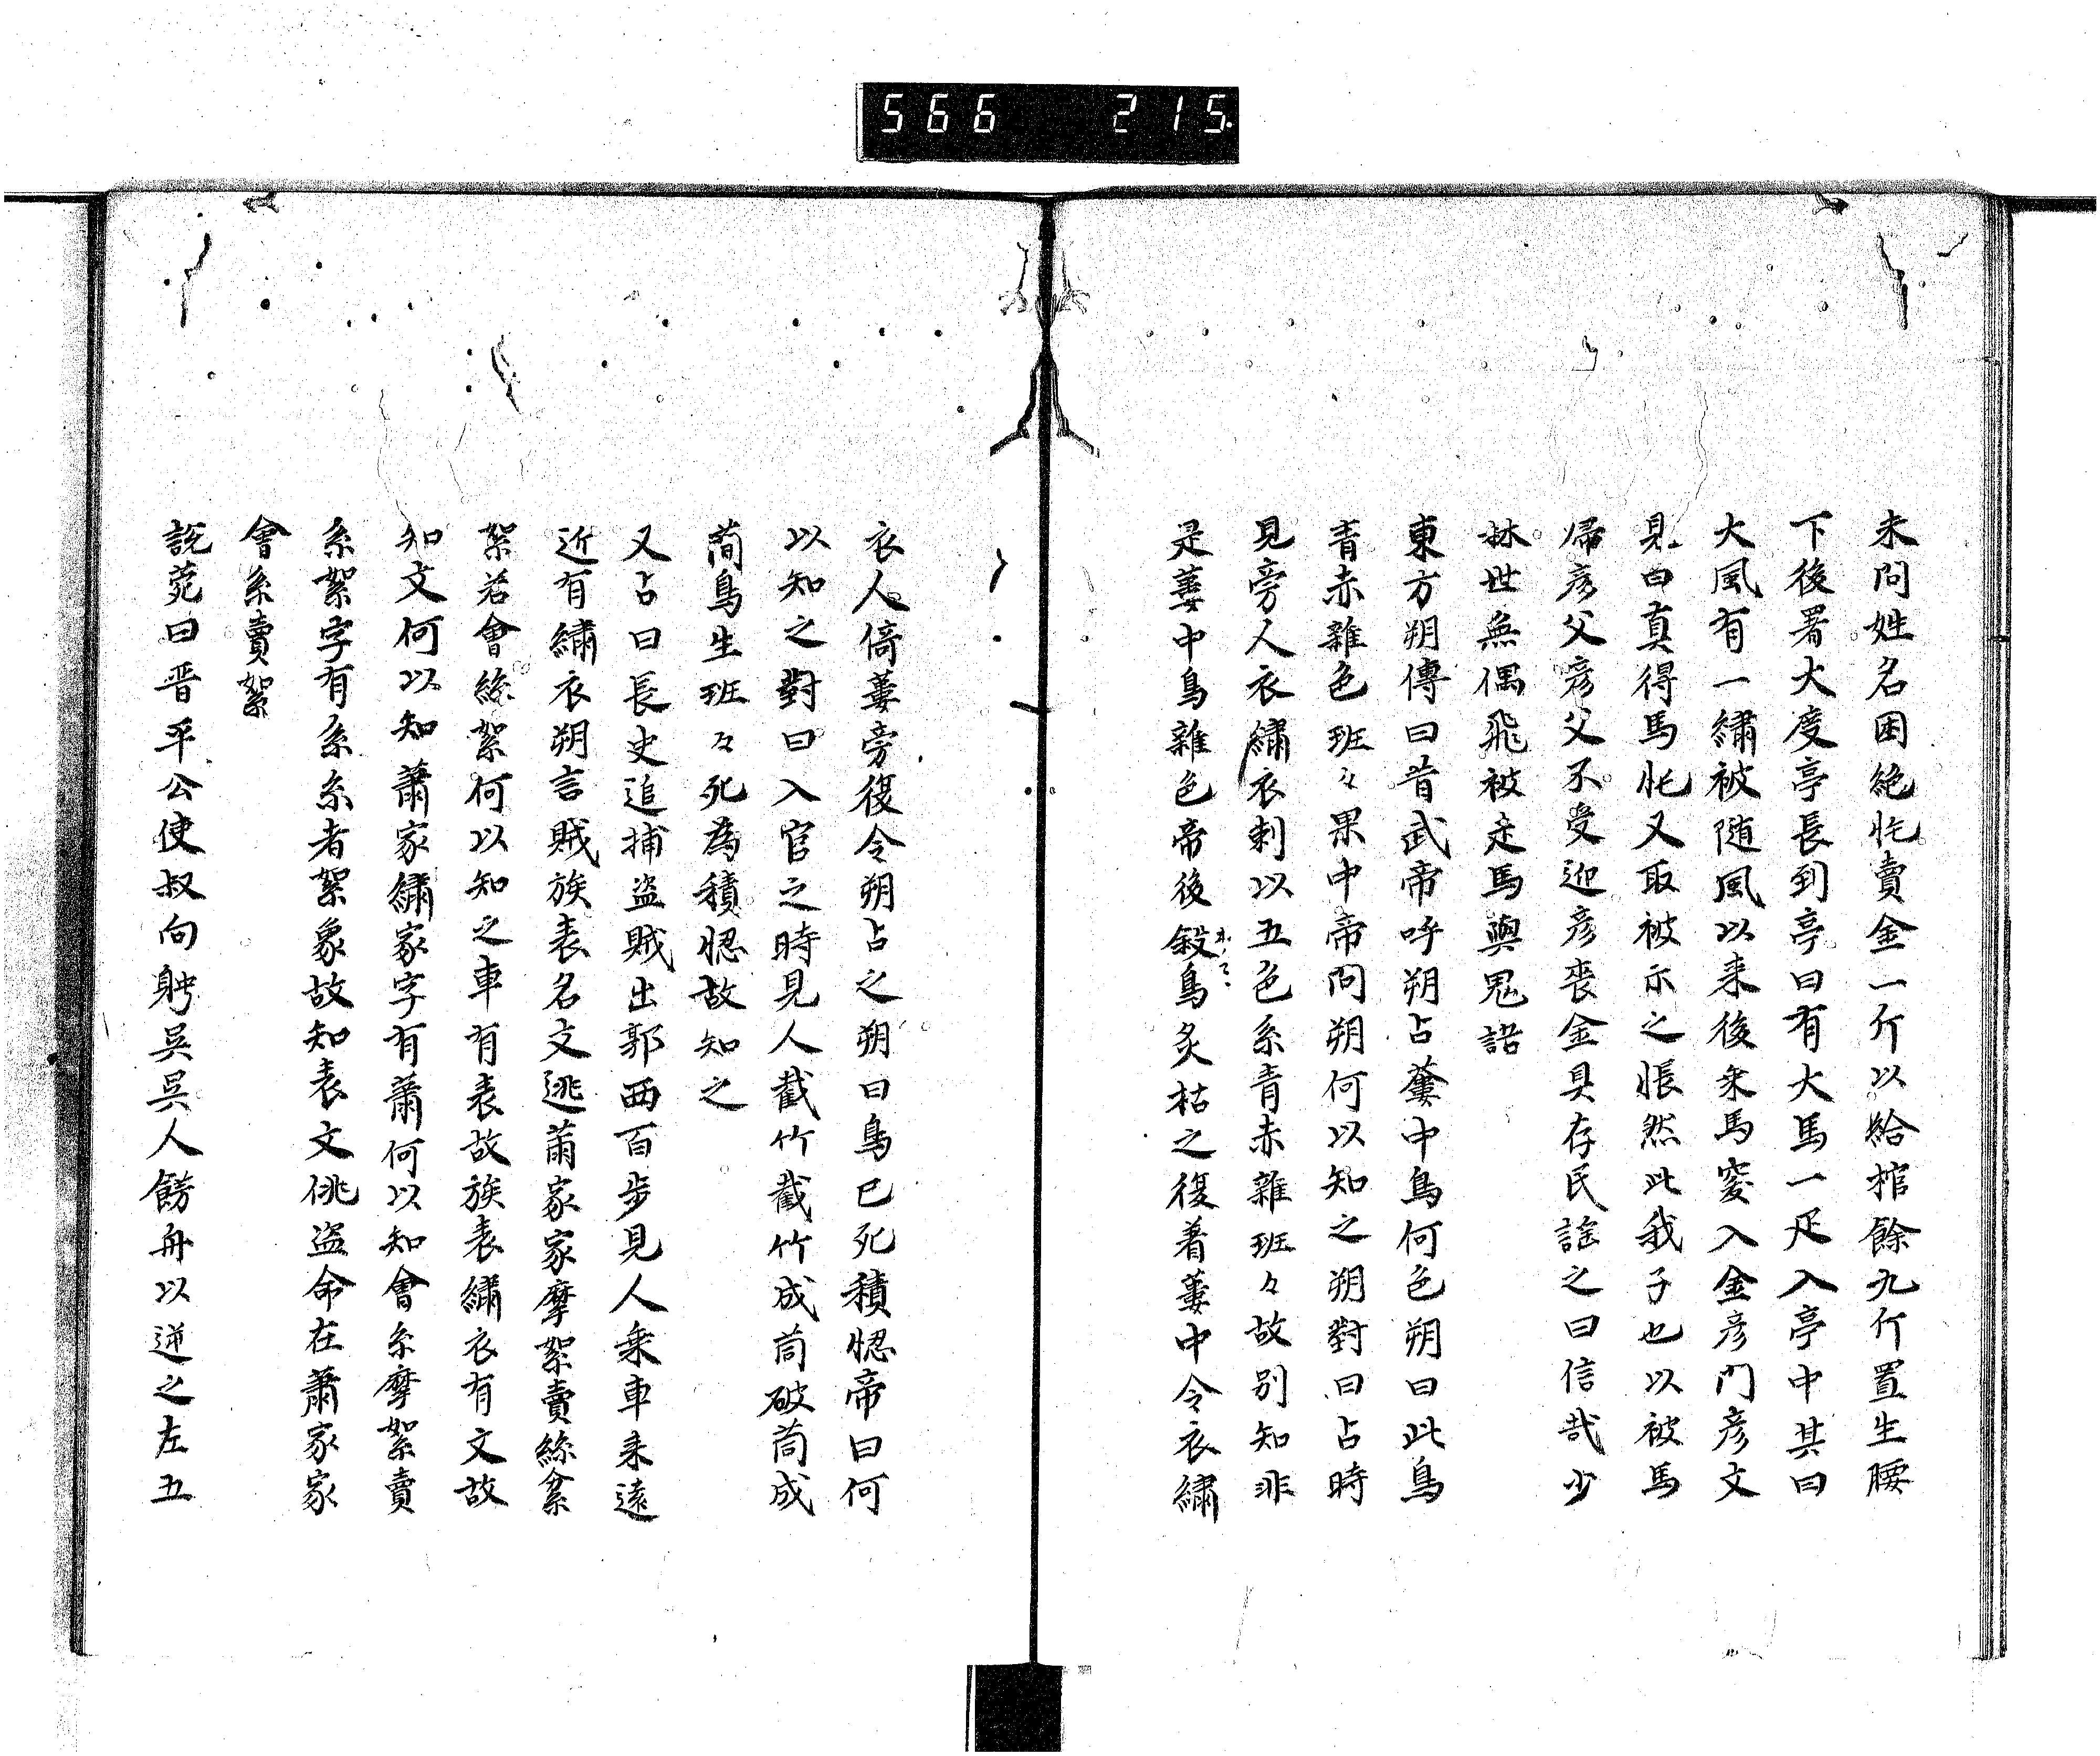 566 215
未問姓名困絶忳賣金一斤以給棺餘九斤置生腰
下後署大度亭長到亭曰有大馬一疋入亭中其曰
大風有一繡被随風以来後乗馬突入金彦門彦文
見曰真得馬忳又取被示之悵然此我子也以被馬
帰彦父彦父不受迎彦喪金具存民謡之曰信哉少
林世無偶飛被走馬與鬼語
東方朔傳曰昔武帝呼朔占蔞中鳥何色朔曰此鳥
青赤雜色班々果中帝問朔何以知之朔對曰占時
見旁人衣繡衣刺以五色糸青赤雜班々故別知非
是蔞中鳥雜色帝後鳥炙枯之復着蔞中令衣繡
衣人倚蔞旁復令朔占之朔曰鳥已死積惣帝曰何
以知之對曰入官之時見人截竹截竹成茼破茼成
茼鳥生班々死為積惣故知之
又占曰長史追捕盗賊出郭西百歩見人乗車来遠
近有繡衣朔言賊族表名文逃蕭家家摩絮賣絲
絮若會絲絮何以知之車有表故族表繡衣有文故
知文何以知蕭家繡家字有蕭何以知會糸摩絮賣
糸絮字有糸糸者絮象故知表文佻盗命在蕭家家
會糸賣絮
説苑曰晋平公使叔向聘呉呉人餝舟以逆之左五